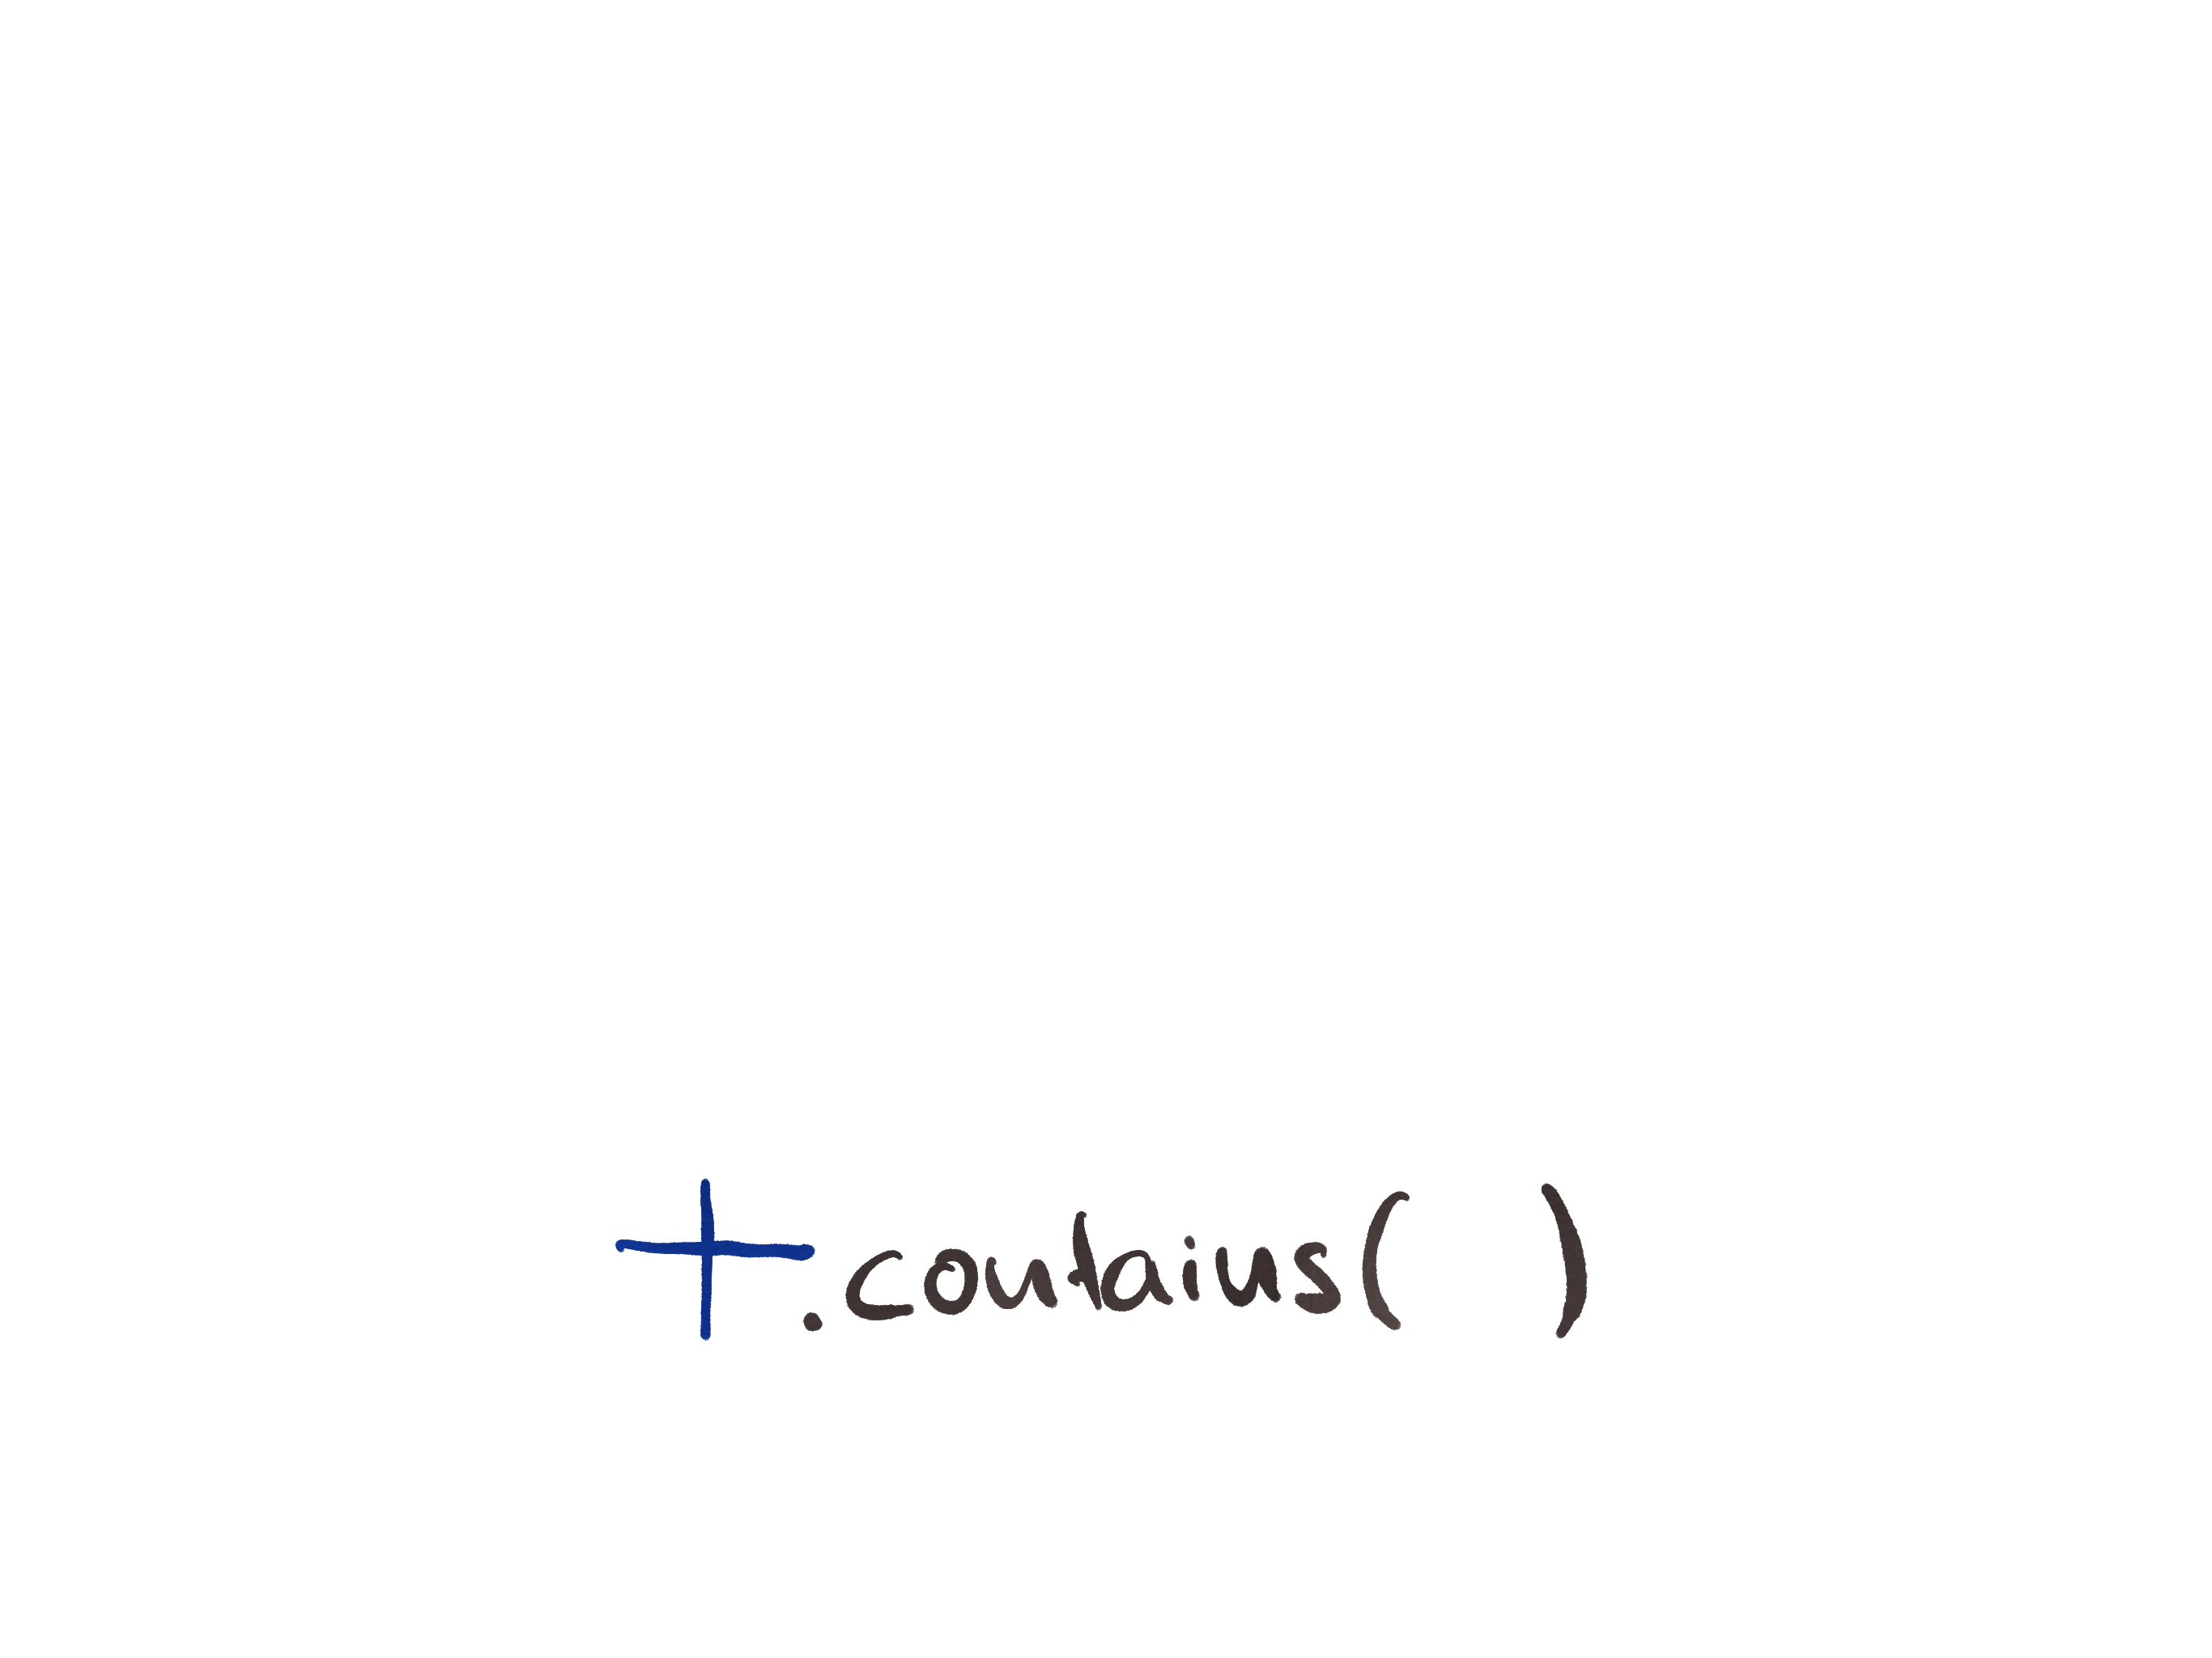 +.contains( )